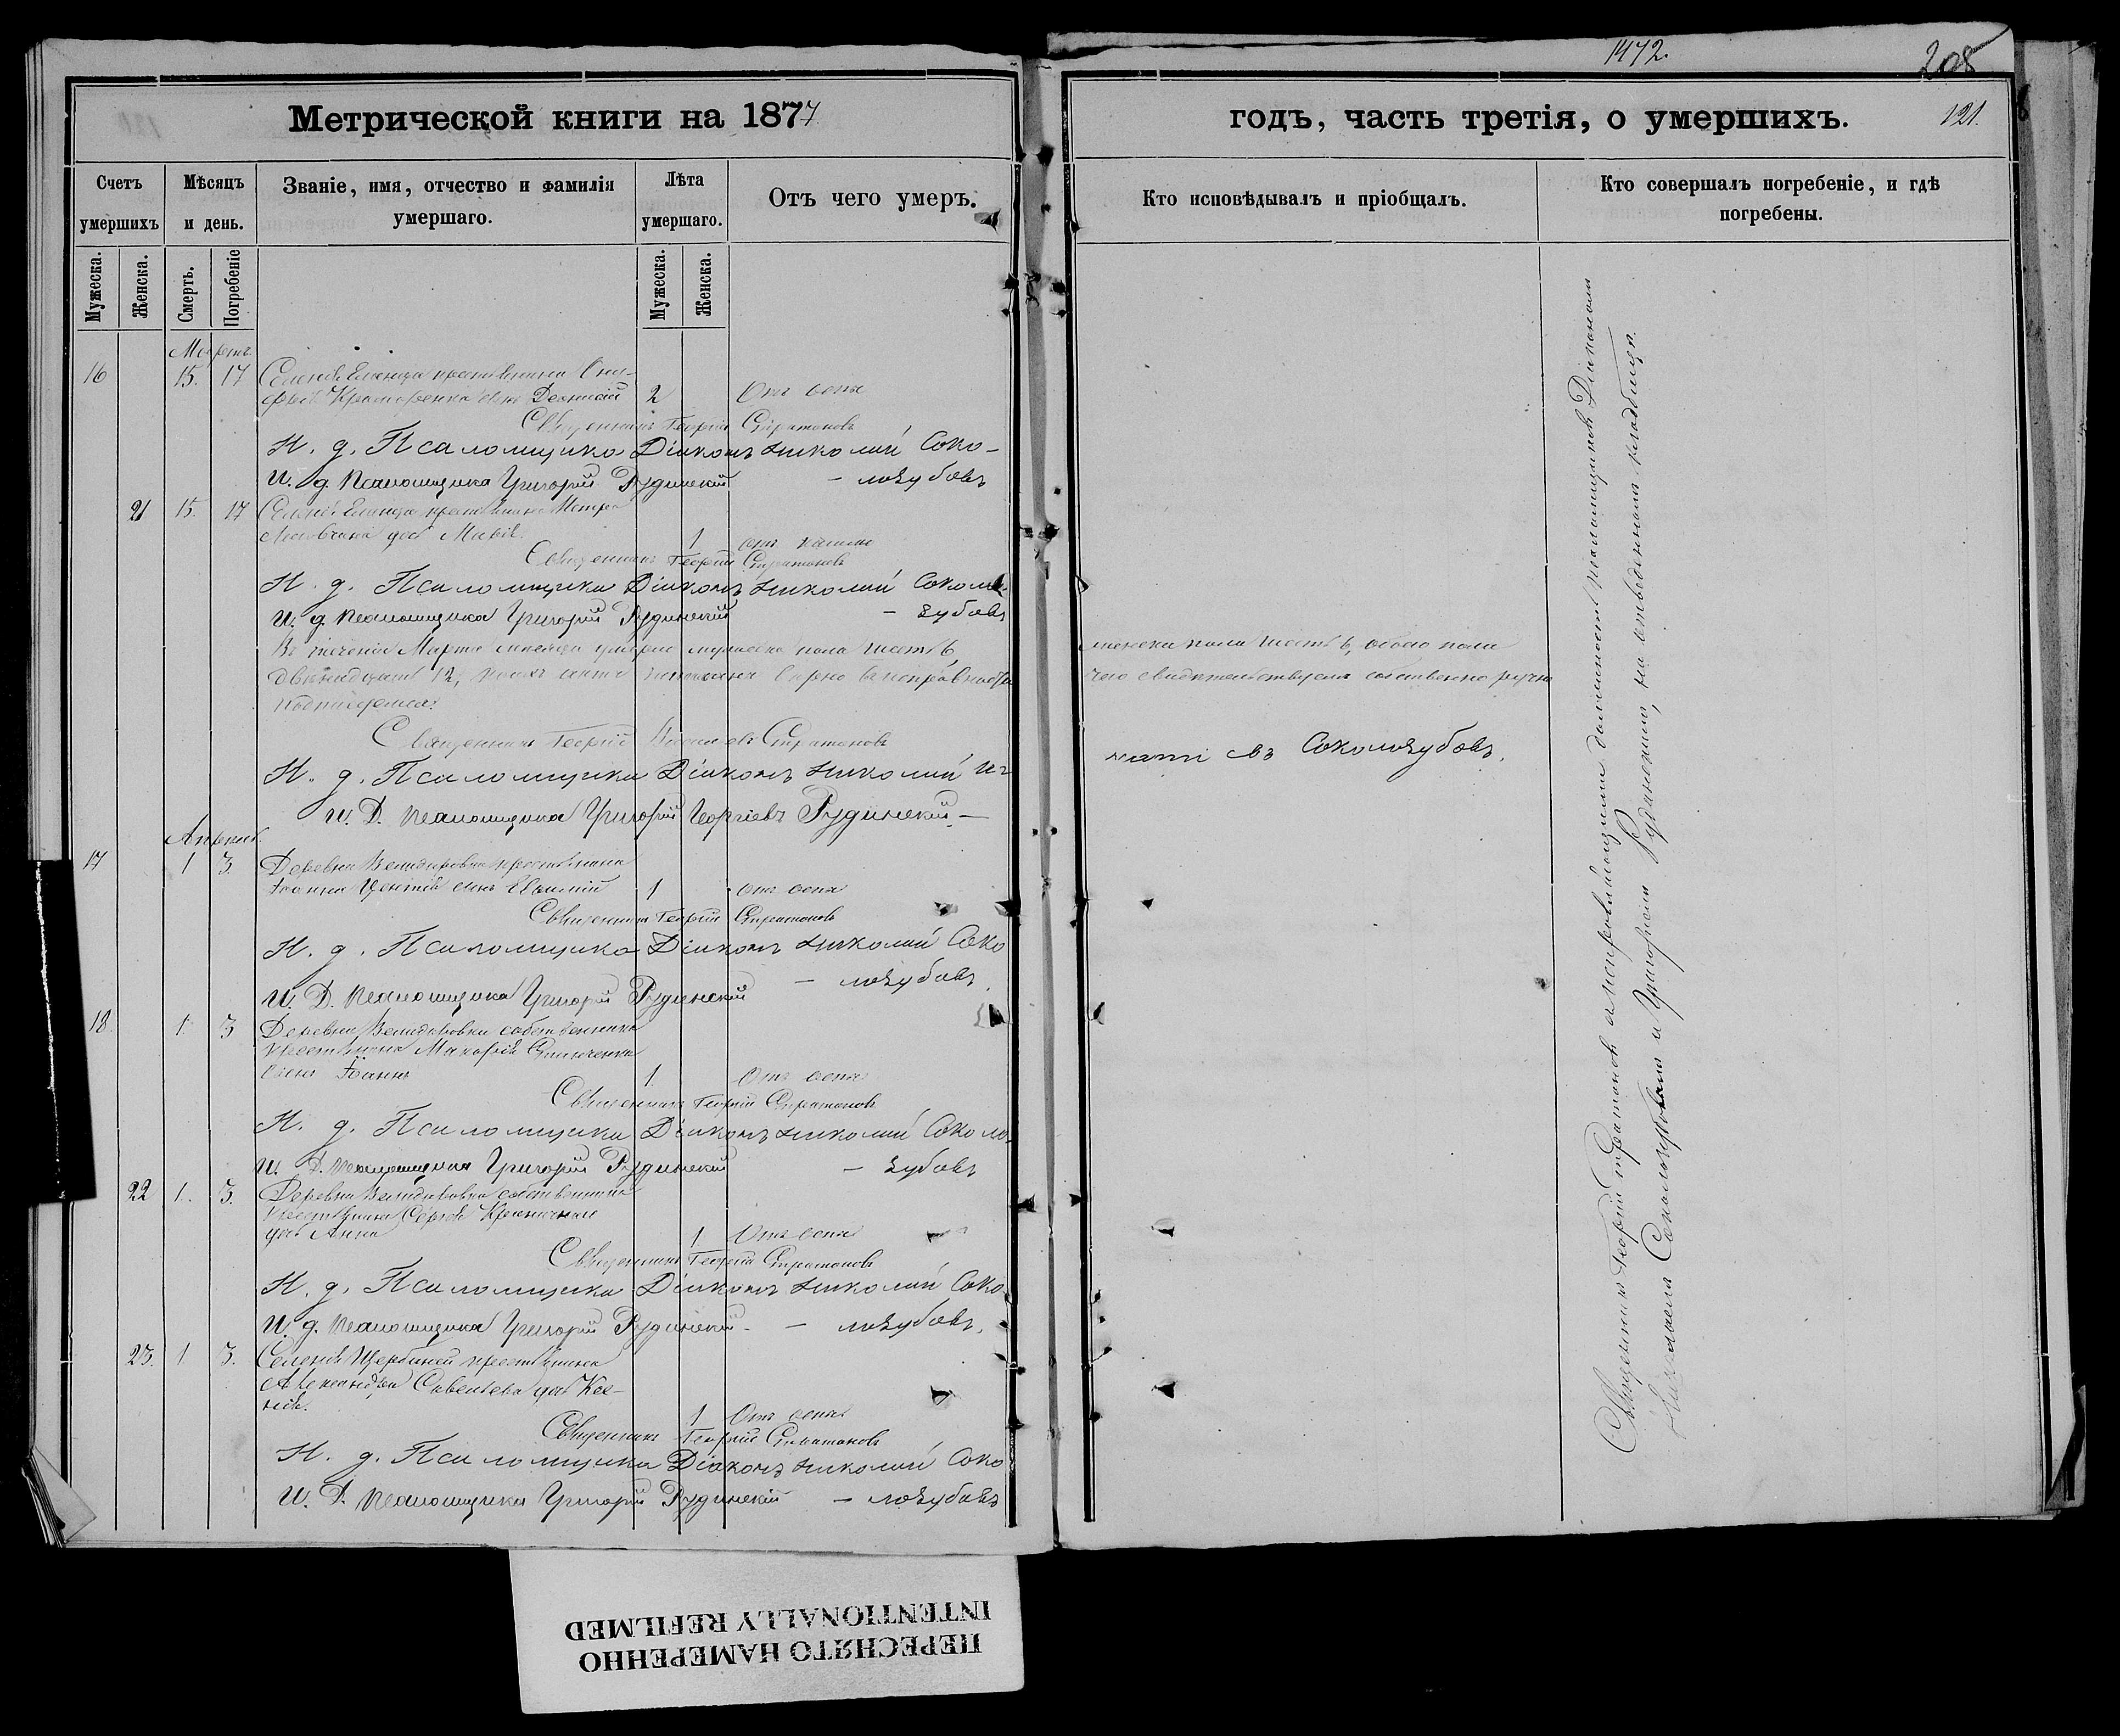 1472.
208
Метрической книги на 1877
годъ, часть третія, о умершихъ.
121.
Счетъ умершихъ
Мѣсяцъ и день.
Званіе, имя, отчество и фамилія умершаго.
Лѣта умершаго.
Отъ чего умеръ.
Кто исповѣдывалъ и пріобщалъ.
Кто совершалъ погребеніе, и гдѣ погребены.
Мужеска.
Женска.
Смерть.
Погребеніе
Мужеска.
Женска.
Мартъ
16 15. 17 крестьянина
сынъ 2 Отъ оспы
Священникъ Георгій Стратоновъ
И. д. Псаломщика Діаконъ Николай Соко-
И. д. Псаломщика Григорій Рудинскій – лозубовъ
21 15. 17
дочь 1 отъ кашля
Священникъ Георгій Стратоновъ
И. д. Псаломщика Діаконъ Николай Соколо-
И. д. Псаломщика Григорій Рудинскій – зубовъ
Въ теченіи Марта мѣсяца умерло мужеска пола шесть 6
женска пола шесть 6, обоего пола
двѣнадцать 12,
чего свидѣтельствуемъ собственно ручно
подписуемся:
Священникъ Георгій Стратоновъ
И. д. Псаломщика Діаконъ Николай Иг-
натіевъ Соколозубовъ.
И. Д. Псаломщика Григорій Георгіевъ Рудинскій –
Апрель
17 1 3. Деревни крестьянина
Іоанна сынъ Евфимій 1 отъ оспы
Священникъ Георгій Стратоновъ
И. д. Псаломщика Діаконъ Николай Соко
– лозубовъ.
И. Д. Псаломщика Григорій Рудинскій
18. 1. 3 Деревни собственника
крестьянина Макарія
сынъ Іоаннъ 1. Отъ оспы
Священникъ Георгій Стратоновъ
И. д. Псаломщика Діаконъ Николай Соколо-
И. Д. Псаломщика Григорій Рудинскій – зубовъ
22 1. 3. Деревни собственника
крестьянина Сергѣя
дочь Анна 1 Отъ оспы
Священникъ Георгій Стратоновъ
И. д. Псаломщика Діаконъ Николай Соко
И. д. Псаломщика Григорій Рудинскій – – лозубовъ.
23. 1 3. Селенія Щербиной крестьянина
Александра Савельева дочь Ксе-
нія. 1 Отъ оспы
Священникъ Георгій Стратоновъ
И. д. Псаломщика Діаконъ Николай Соко
И. Д. Псаломщика Григорій Рудинскій – лозубовъ
Священникъ Георгій Стратоновъ должность псаломщиковъ Діакономъ
Николаемъ Соколозубовымъ и Григоріемъ Рудинскимъ, на отведенномъ кладбищѣ.
ПЕРЕСНЯТО НАМЕРЕННО
INTENTIONALLY REFILMED